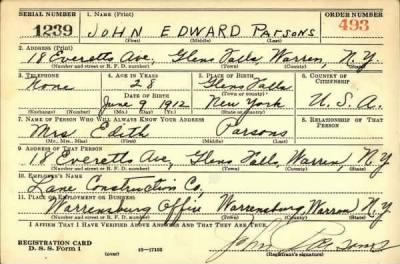 SERIAL NUMBER 1. NAME (Print) ORDER NUMBER
1239 JOHN EDWARD PARSONS 493
(First) (Middle) (Last)
2. ADDRESS (Print)
18 Everetts Ave, Glens Falls, Warren, N.Y.
(Number and street or R. F. D. number) (Town) (County) (State)
3. TELEPHONE 4. AGE IN YEARS 5. PLACE OF BIRTH 6. COUNTRY OF CITIZENSHIP
None 28 Glens Falls
DATE OF BIRTH
June 9 1912 New York U.S.A.
(Exchange) (Number) (Mo.) (Day) (Yr.) (State or country)
7. NAME OF PERSON WHO WILL ALWAYS KNOW YOUR ADDRESS 8. RELATIONSHIP OF THAT PERSON
Mrs Edith Parsons
(Mr., Mrs., Miss) (First) (Middle) (Last)
9. ADDRESS OF THAT PERSON
18 Everetts Ave, Glens Falls, Warren, N.Y
(Number and street or R. F. D. number) (Town) (County) (State)
10. EMPLOYER'S NAME
Lane Construction Co,
11. PLACE OF EMPLOYMENT OR BUSINESS
Warrensburg Office Warrensburg, Warren N.Y
(Number and street or R. F. D. number) (Town) (County) (State)
I AFFIRM THAT I HAVE VERIFIED ABOVE ANSWERS AND THAT THEY ARE TRUE.
REGISTRATION CARD
D. S. S. Form 1 (over) 16—17105 John E Parsons
(Registrant's signature)